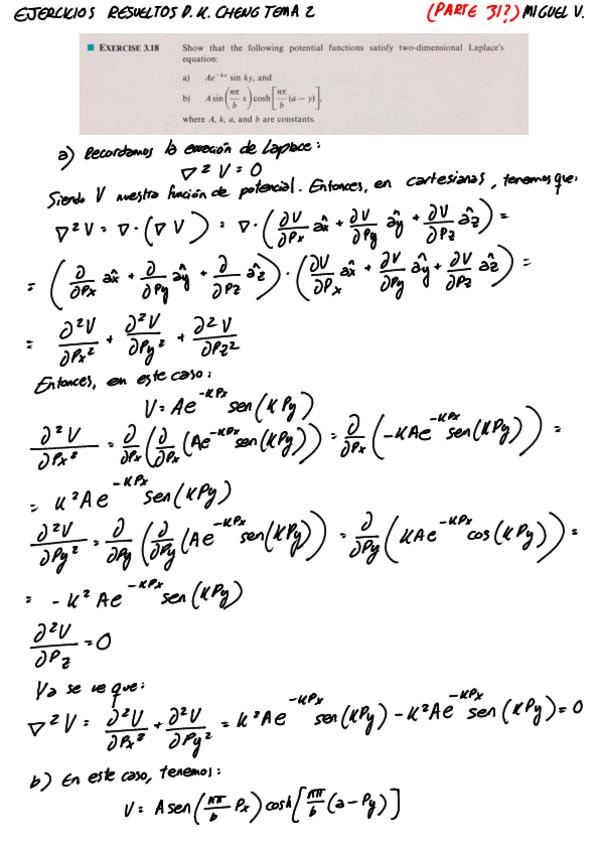 EJERCICIOS RESUELTOS D.K. CHENG TEMA 2 (PARTE 31?) MIGUEL V.
■ EXERCISE 3.18 Show that the following potential functions satisfy two-dimensional Laplace's
equation:
a) Ae^{-kx} sin ky, and
b) A sin(nπ/b x) cosh[nπ/b (a − y)],
where A, k, a, and b are constants.
a) Recordamos la ecuación de Laplace:
∇²V = 0
Siendo V nuestra función de potencial. Entonces, en cartesianas, tenemos que:
∇²V = ∇·(∇V) = ∇·(∂V/∂Px âx + ∂V/∂Py ây + ∂V/∂Pz âz) =
= (∂/∂Px âx + ∂/∂Py ây + ∂/∂Pz âz)·(∂V/∂Px âx + ∂V/∂Py ây + ∂V/∂Pz âz) =
= ∂²V/∂Px² + ∂²V/∂Py² + ∂²V/∂Pz²
Entonces, en este caso:
V = Ae^{-KPx} sen(KPy)
∂²V/∂Px² = ∂/∂Px(∂/∂Px(Ae^{-KPx} sen(KPy))) = ∂/∂Px(-KAe^{-KPx} sen(KPy)) =
= K²Ae^{-KPx} sen(KPy)
∂²V/∂Py² = ∂/∂Py(∂/∂Py(Ae^{-KPx} sen(KPy))) = ∂/∂Py(KAe^{-KPx} cos(KPy)) =
= -K²Ae^{-KPx} sen(KPy)
∂²V/∂Pz = 0
Ya se ve que:
∇²V = ∂²V/∂Px² + ∂²V/∂Py² = K²Ae^{-KPx} sen(KPy) - K²Ae^{-KPx} sen(KPy) = 0
b) En este caso, tenemos:
V = A sen(nπ/b Px) cosh[nπ/b (a - Py)]